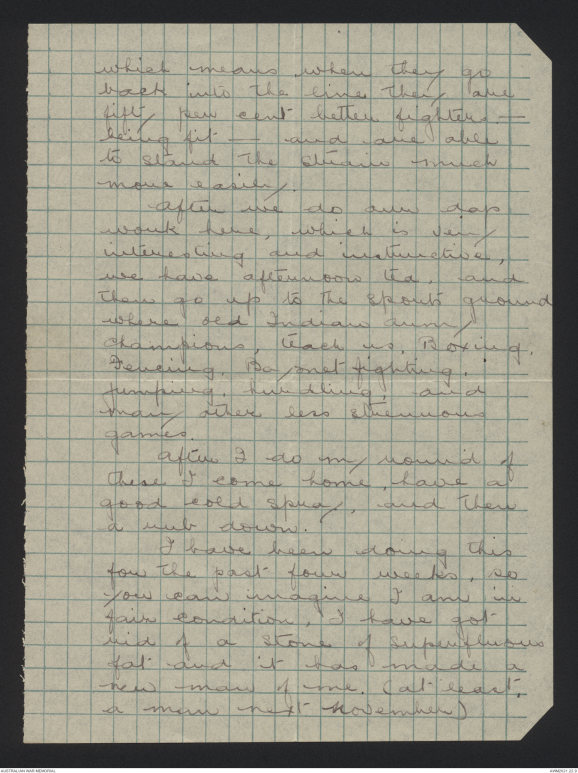 which means, when they go
back into the line they are
fifty per cent better fighters. —
being fit — and are able
to stand the strain much
more easily.
After we do our days
work here, which is very
interesting and instructive,
we have afternoon tea, and
then go up to the sports ground
where old Indian army
champions, teach us, Boxing,
Fencing, Bayonet fighting,
jumping, hurdling, and
many other less strenuous
games.
After I do my round of
these I come home, have a
good cold spray, and then
a rub down.
I have been doing this
for the past four weeks, so
you can imagine I am in
fair condition, I have got
rid of a stone of superfluous
fat and it has made a
new man of me. (at least,
a man next November)
AUSTRALIAN WAR MEMORIAL